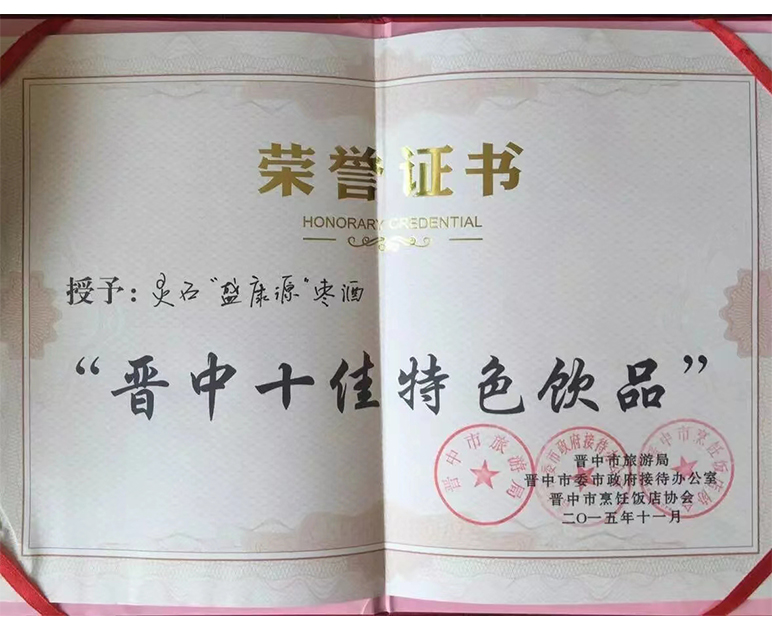 荣誉证书
HONORARY CREDENTIAL
授予：灵石“盛康源”枣酒
“晋中十佳特色饮品”
晋中市旅游局
晋中市委市政府接待办公室
晋中市烹饪饭店协会
二〇一五年十一月
晋中市旅游局